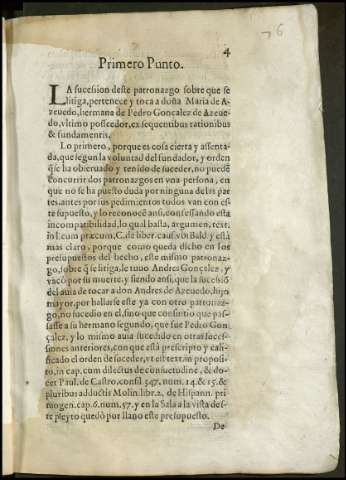 76
4
Primero Punto.
LA sucession deste patronazgo sobre que se
litiga, pertenece y toca a doña Maria de A-
zeuedo, hermana de Pedro Gonçalez de Azeue-
do, vltimo posseedor, ex sequentibus rationibus
& fundamentis.
Lo primero, porque es cosa cierta y assenta-
da, que segun la voluntad del fundador, y orden
q̃ se ha obseruado y tenido de suceder, no puedē
concurrir dos patronazgos en vna persona, en
que no se ha puesto duda por ninguna de las par
tes, antes por sus pedimentos todos van con es-
te supuesto, y lo reconocē ansi, confessando esta
incompatibilidad, lo qual basta, argumen. text.
in l. cum præcum. C. de liber. caus. vbi Bald. y está
mas claro, porque como queda dicho en los
presupuestos del hecho, este mismo patronaz-
go, sobre q̃ se litiga, le tuuo Andres Gonçalez, y
vacò por su muerte, y siendo ansi, que la sucessiō
del auia de tocar a don Andres de Azeuedo, hijo
mayor, por hallarse este ya con otro patronaz-
go, no sucedio en el, sino que consintio que pas-
sasse a su hermano segundo, que fue Pedro Gon
çalez, y lo mismo auia sucedido en otras suces-
siones anteriores, con que està prescripto y cali-
ficado el orden de suceder, vt est text. in proposi-
to, in cap. cum dilectus de consuetudine, & do-
cet Paul. de Castro, consil. 547. num. 14. & 15. &
pluribus adductis Molin. libr. 2. de Hispann. pri
mogen. cap. 6. num. 57. y en la Sala a la vista des-
te pleyto quedò por llano este presupuesto.
De